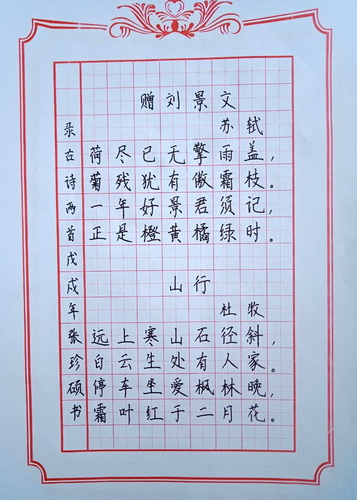 赠刘景文
苏轼
荷尽已无擎雨盖，
菊残犹有傲霜枝。
一年好景君须记，
正是橙黄橘绿时。
山行
杜牧
远上寒山石径斜，
白云生处有人家。
停车坐爱枫林晚，
霜叶红于二月花。
录古诗两首戊戌年张珍硕书